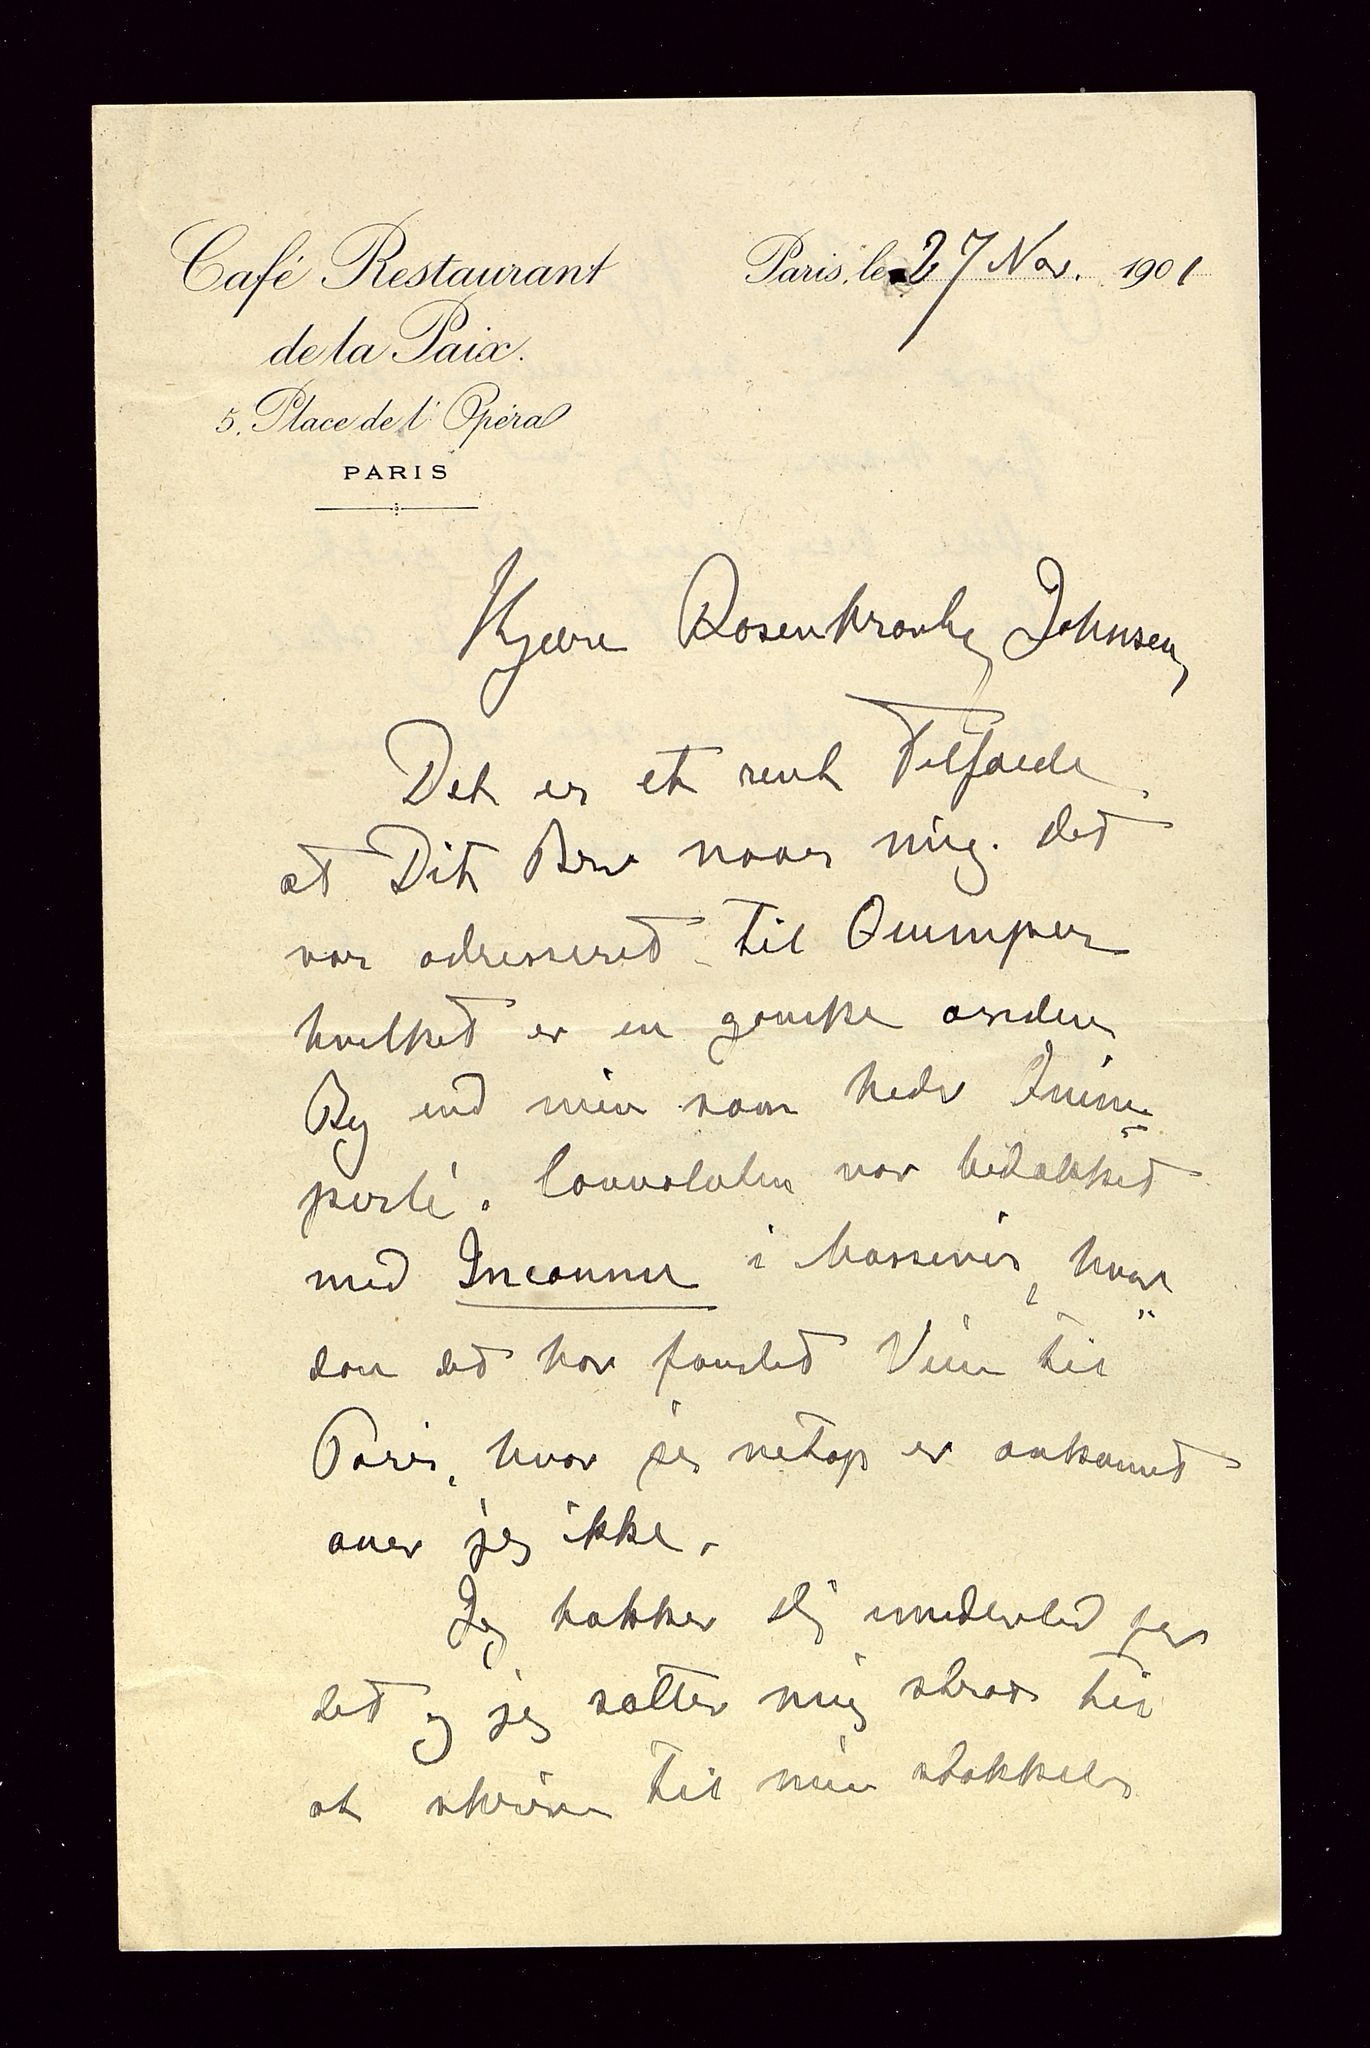 Café Restaurant
de la Paix.
5, Place de l'Opéra
PARIS
Paris, le 27 Nov. 1901
Kjære Rosenkrantz Johnsen,
Det er et rent Tilfælde
at Dit Brev naaer mig. det
var adresseret til Quimper
hvilket er en ganske anden
By end min som heder Quim-
perlé. Convoluten var bedækket
med Inconnu i Massevis, hvor
dan det har fundet Vein til
Paris, hvor jeg netop er ankommet
aner jeg ikke.
Jeg takker dig imidlertid for
det og jeg sætter mig strax til
at skrive til min stakkels